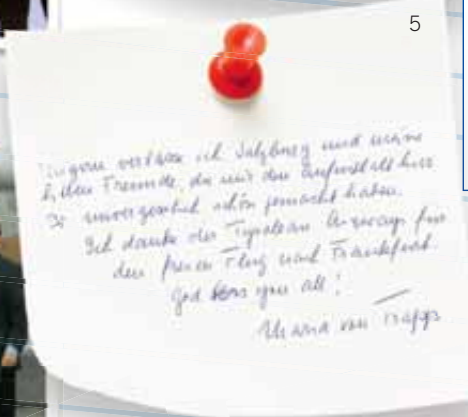 5
Ungern verlasse ich Salzburg und meine
lieben Freunde, die mir den Aufenthalt hier
so unvergesslich schön gemacht haben.
Ich danke der Tyrolean Airways für
den freien Flug nach Frankfurt.
God bless you all!
Maria von Trapp